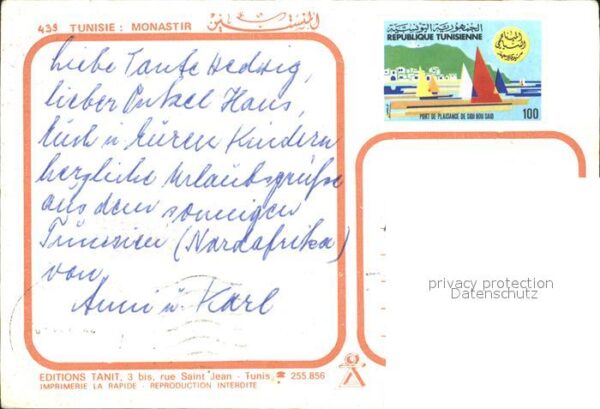 439 TUNISIE : MONASTIR المنستير
Liebe Tante Hedwig,
lieber Onkel Hans,
Euch u Euren Kindern
herzliche Urlaubsgrüße
aus dem sonnigen
Tunesien (Nordafrika)
von
Anni u. Karl
الجمهورية التونسية
REPUBLIQUE TUNISIENNE
PORT DE PLAISANCE DE SIDI BOU SAID
100
privacy protection
Datenschutz
EDITIONS TANIT, 3 bis, rue Saint Jean - Tunis ☎ 255.856
IMPRIMERIE LA RAPIDE - REPRODUCTION INTERDITE